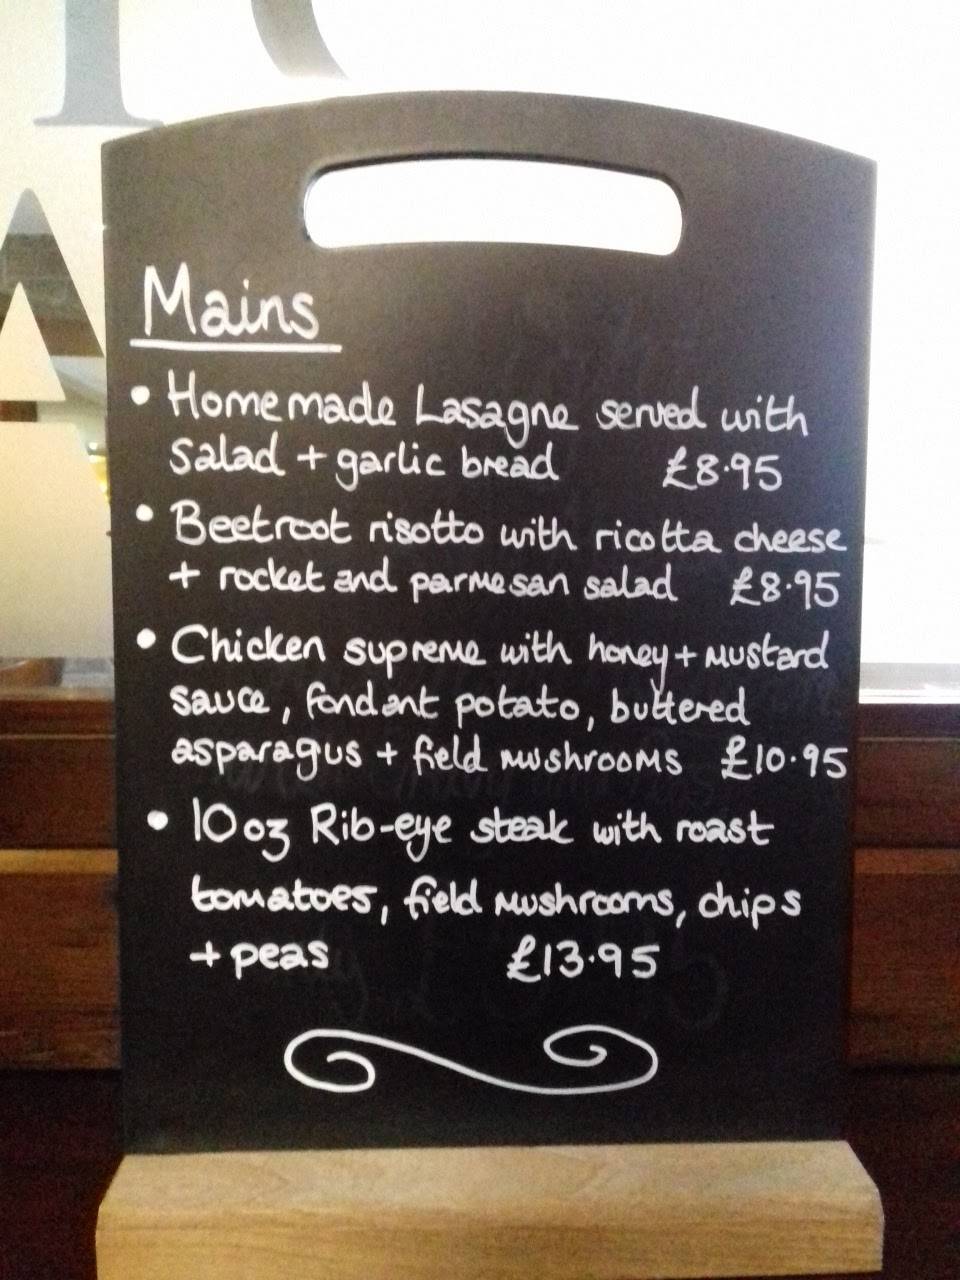 Mains
• Homemade Lasagne served with
salad + garlic bread £8.95
• Beetroot risotto with ricotta cheese
+ rocket and parmesan salad £8.95
• Chicken supreme with honey + mustard
sauce, fondant potato, buttered
asparagus + field mushrooms £10.95
• 10oz Rib-eye steak with roast
tomatoes, field mushrooms, chips
+ peas £13.95